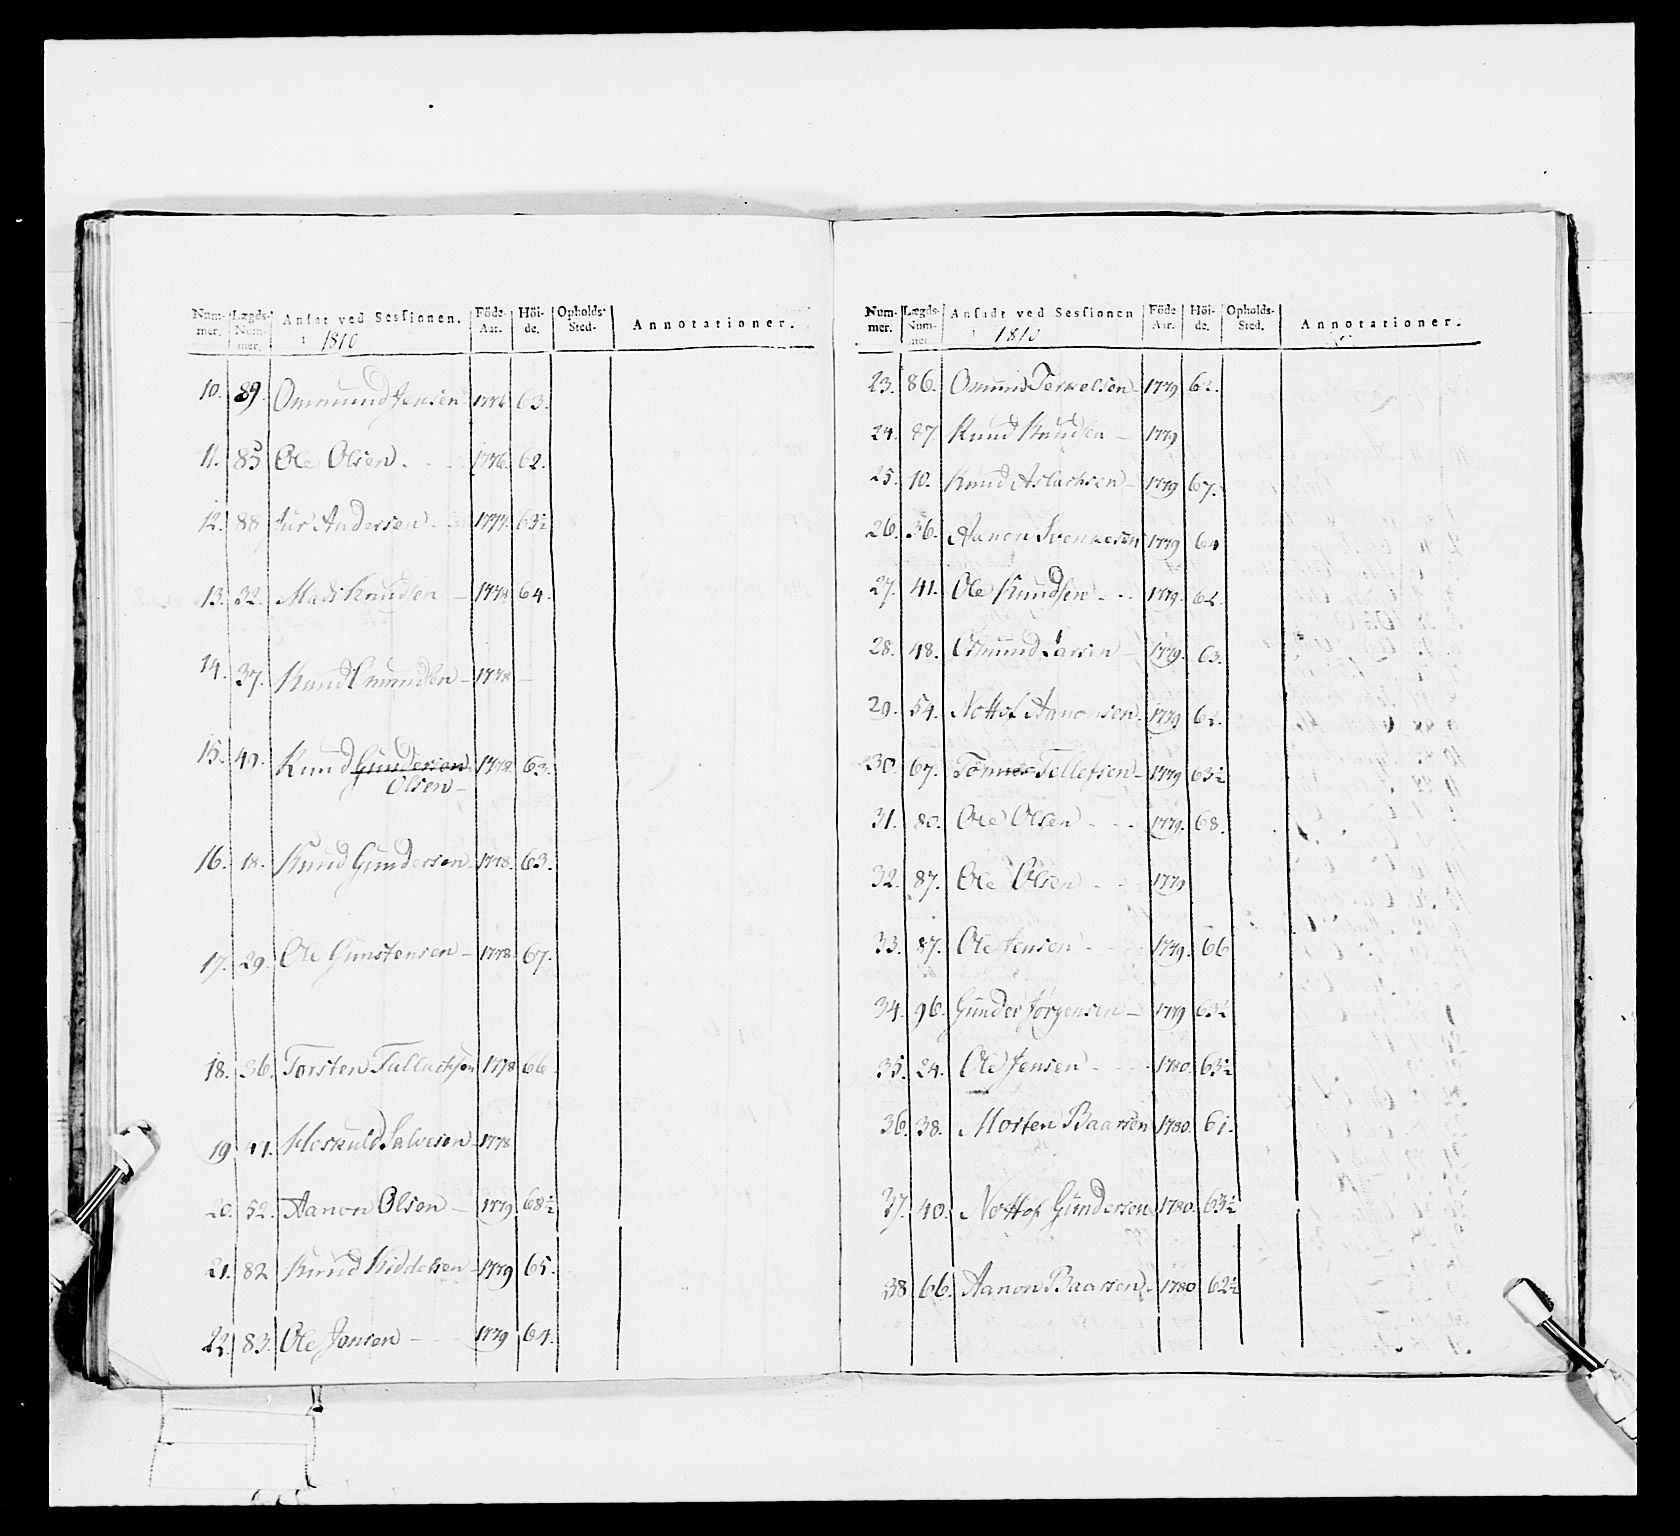 Num- Lægds- Ansat ved Sessionen. Föde Höi- Opholds- Annotationer.
mer. Num- i 1810 Aar. de. Sted-
mer.
10. 89. Ommund Jensen 1776. 63.
11. 85 Ole Olsen 1776. 62.
12. 88 Andersen 1777. 63½
13. 32. Mads Knudsen 1778. 64.
14. 37. Knud Omundsen 1778
15. 40. Knud Gundersen 1778. 63.
Olsen
16. 18. Knud Gundersen 1778. 63.
17. 29. Ole Gunstensen 1778. 67.
18. 36. Torsten Tallachsen 1778 66
19 41. Heskuld Salvesen 1778
20. 52. Aanon Olson 1779 68½
21. 82 Knud Kiddelsen 1779 65.
22. 83. Ole Jonsen 1779 64.
Num- Lægds- Ansadt ved Sessionen Föde Höi- Opholds- Annotationer.
mer. Num- i 1810 Aar. de. Sted.
mer
23. 86. Omund Terkelsen 1779 62.
24. 87. Knud Knudsen 1779
25. 10. Knud Aslachsen 1779 67.
26. 36. Aanon Svenkesen 1779 64
27. 41. Ole Knudsen 1779. 62.
28. 48. Osmund Larsen 1779. 63.
29. 54. Nottof Aanonsen 1779 62.
30. 67. Tönnes Tellefsen 1779 63½
31. 80. Ole Olsen 1779. 68.
32. 87. Ole Olsen 1779
33. 87. Ole Jensen 1779. 66
34. 96. Gunder Jörgensen 1779 63½
35. 24. Ole Jensen 1780. 63½
36. 38. Morten Baarsen 1780. 61.
37. 40. Nottof Gundersen 1780. 63½
38 66. Aanon Baarsen 1780 62½